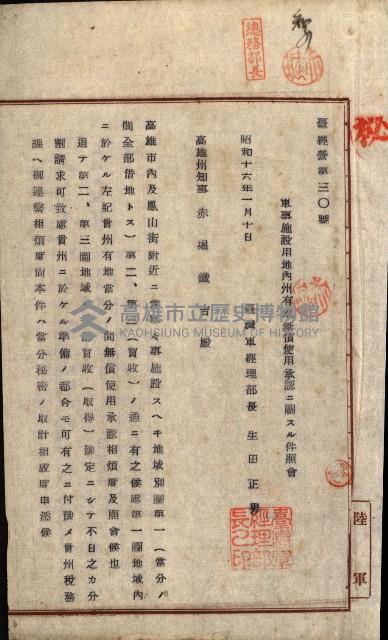 臺經營第三〇號
軍事施設用地內州有地無償使用承認ニ關スル件照會
昭和十六年一月十日
臺灣軍經理部長 生田正男
高雄州知事 赤堀鐵吉殿
高雄市內及鳳山街附近ニ
事施設スヘキ地域別圖第一（當分ノ
間全部借地トス）第二、第三（買收）ノ通ニ有之候處第一圖地域內
ニ於ケル左記貴州有地當分ノ間無償使用承認相煩度及照會候也
追テ第二、第三圖地域
買收（取得）豫定ニシテ不日之カ分
割請求可致處貴州ニ於ケル準備ノ都合モ可有之ニ付豫メ貴州稅務
課ヘ御連繫相煩度尚本件ハ當分秘密ノ取計相成度申添候
陸軍
總務部長
秘
臺灣軍經理部長之印
高雄市立歷史博物館
KAOHSIUNG MUSEUM OF HISTORY